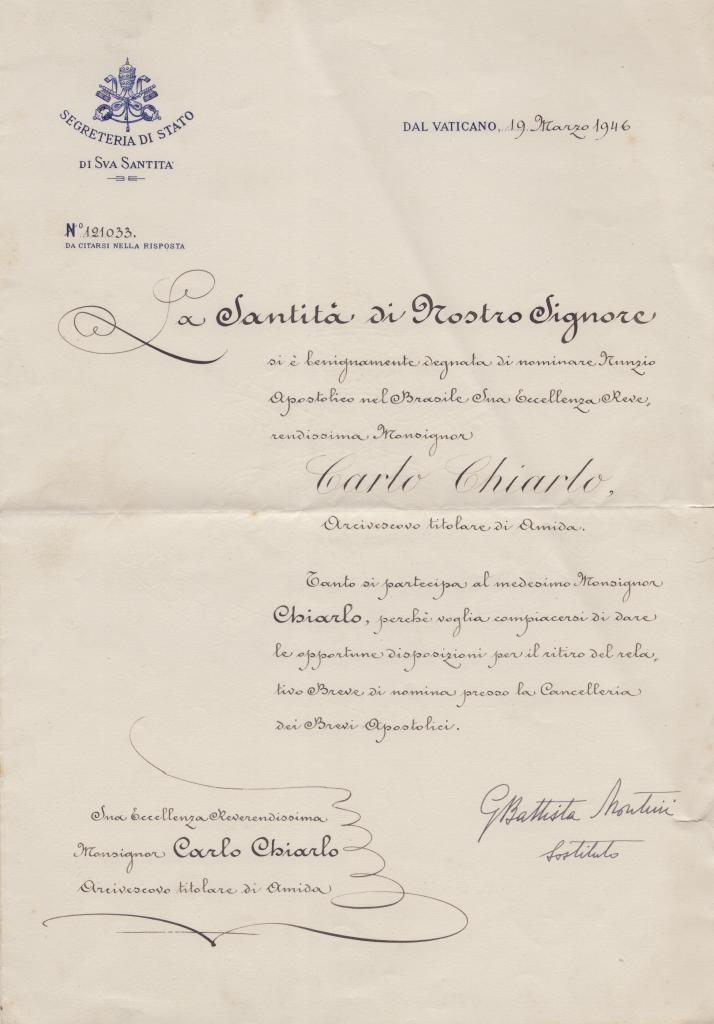 SEGRETERIA DI STATO
DI SVA SANTITA'
DAL VATICANO, 19 Marzo 1946
N.° 121033.
DA CITARSI NELLA RISPOSTA
La Santità di Nostro Signore
si è benignamente degnata di nominare Nunzio
Apostolico nel Brasile Sua Eccellenza Reve,
rendissima Monsignor
Carlo Chiarlo,
Arcivescovo titolare di Amida.
Tanto si partecipa al medesimo Monsignor
Chiarlo, perchè voglia compiacersi di dare
le opportune disposizioni per il ritiro del rela,
tivo Breve di nomina presso la Cancelleria
dei Brevi Apostolici.
GBattista Montini
Sostituto
Sua Eccellenza Reverendissima
Monsignor Carlo Chiarlo
Arcivescovo titolare di Amida